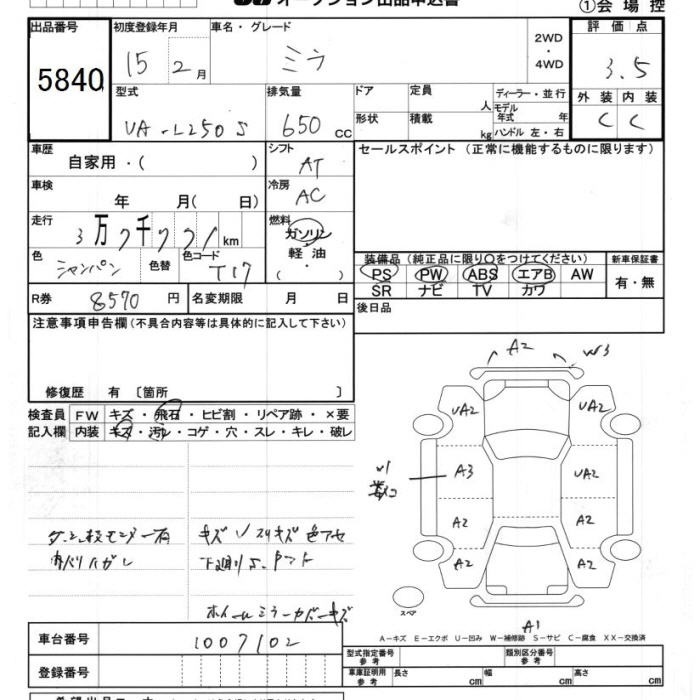 オークション出品申込書
①会場控
出品番号 初度登録年月 車名・グレード 評価点
5840 15年2月 ミラ 2WD・4WD 3.5
型式 排気量 ドア 定員 人 ディーラー・並行 外装 内装
UA-L250S 650cc 形状 積載 kg モデル年式 年 ハンドル 左・右 C C
車歴 シフト セールスポイント(正常に機能するものに限ります)
自家用・( ) AT
車検 冷房
年 月( 日) AC
走行 燃料
3万7千771km ガソリン・軽油・( )
色 色替 色コード 装備品(純正品に限り○をつけてください) 新車保証書
シャンパン T17 PS PW ABS エアB AW 有・無
SR ナビ TV カワ
R券 8570円 名変期限 月 日 後日品
注意事項申告欄(不具合内容等は具体的に記入して下さい)
修復歴 有 〔箇所 〕
検査員 FW キズ・飛石・ヒビ割・リペア跡・×要
記入欄 内装 キズ・汚レ・コゲ・穴・スレ・キレ・破レ
A2 W3
UA2 UA2
W1 A3 UA2
A2 A2
A2 A2
スペア
A1
キズ U スリキズ 色アセ
内バリハガレ 下廻りS.
ホイールミラーカバーキズ
A－キズ E－エクボ U－凹み W－補修跡 S－サビ C－腐食 XX－交換済
車台番号 1007102 型式指定番号 参考 類別区分番号 参考
登録番号 車庫証明用 参考 長さ cm 幅 cm 高さ cm